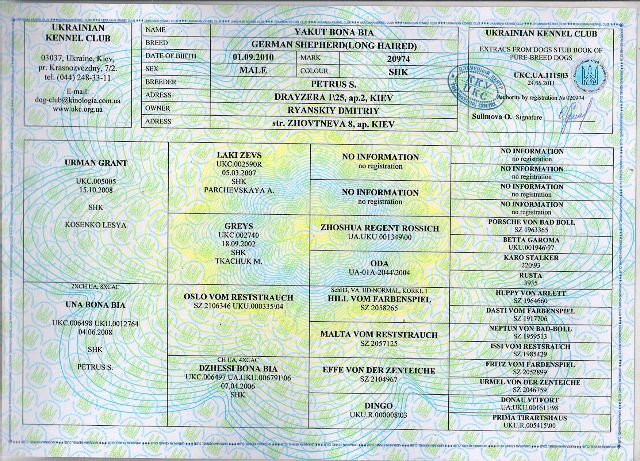 UKRAINIAN
KENNEL CLUB
03037, Ukraine, Kiev
pr. Krasnozvezdny, 7/2.
tel. (044) 248-33-11
E-mail:
dog-club@kinologia.com.ua
www.ukc.org.ua
NAME YAKUT BONA BIA
BREED GERMAN SHEPHERD(LONG HAIRED)
DATE OF BIRTH 01.09.2010 MARK 20974
SEX MALE COLOUR SHK
BREEDER PETRUS S.
ADRESS DRAYZERA 1\25, ap.2, KIEV
OWNER RYANSKIY DMITRIY
ADRESS str. ZHOVTNEVA 8, ap. KIEV
UKRAINIAN KENNEL CLUB
EXTRACTS FROM DOGS STUB BOOK OF
PURE-BREED DOGS
UKC.UA.1115\03
24.05.2011
Authority by registration №
Sulimova O. Signature
URMAN GRANT
UKC.005005
15.10.2008
SHK
KOSENKO LESYA
2XCH UA, 8XCAC
UNA BONA BIA
UKC.006498 UKU.0012764
04.06.2008
SHK
PETRUS S.
LAKI ZEVS
UKC.002590R
05.03.2007
SHK
PARCHEVSKAYA A.
GREYS
UKC.002740
18.09.2002
SHK
TKACHUK M.
OSLO VOM RESTSTRAUCH
SZ 2106346 UKU.000335\04
CH UA, 4XCAC
DZHESSI BONA BIA
UKC.006497 UA.UKU.006791\06
07.04.2006
SHK
NO INFORMATION
no registration
NO INFORMATION
no registration
ZHOSHUA REGENT ROSSICH
UA.UKU.001349\00
ODA
UA-01A-2044\2004
HILL VOM FARBENSPIEL
SZ 2058265
MALTA VOM RESTSRAUCH
SZ 2057125
EFFE VON DER ZENTEICHE
SZ 2104967
DINGO
UKU.R.000008\03
NO INFORMATION
no registration
NO INFORMATION
no registration
NO INFORMATION
no registration
NO INFORMATION
no registration
PORSCHE VON BAD BOLL
SZ 1963365
BETTA GAROMA
UKU.001946\97
KARO STALKER
2209\3
RUSTA
3935
HUPPY VON ARLETT
SZ 1964660
DASTI VOM FARBENSPIEL
SZ 1917706
NEPTUN VON BAD-BOLL
SZ 1959513
ISSI VOM RESTSRAUCH
SZ 1985429
FRITZ VOM FARDENSPIEL
SZ 2052899
URMEL VON DER ZENTEICHE
SZ 2046759
DONAU VITFORT
UA.UKU.001611\98
PRIMA TIRARTSHAUS
UKU.R.005415\00